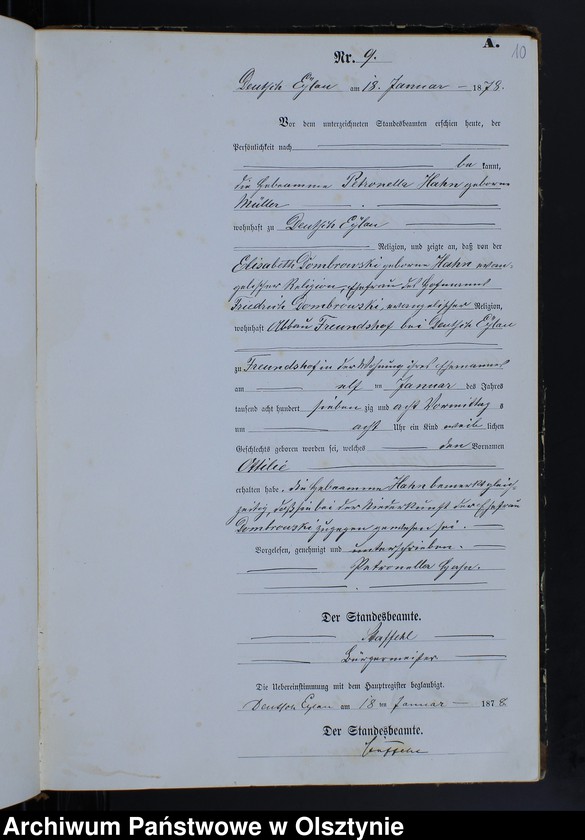 A.
10
Nr. 9.
Deutsch Eylau am 18. Januar 1878.
Vor dem unterzeichneten Standesbeamten erschien heute, der
Persönlichkeit nach
be kannt,
die Hebeamme Petronella Hahn geborne
Müller
wohnhaft zu Deutsch Eylau
Religion, und zeigte an, daß von der
Elisabeth Dombrowski geborne Hahn, evan-
gelischer Religion, Ehefrau des Hofmanns
Friedrich Dombrowski, evangelischer Religion,
wohnhaft Abbau Freundshof bei Deutsch Eylau
zu Freundshof in der Wohnung ihres Ehemannes
am elf ten Januar des Jahres
tausend acht hundert sieben zig und acht Vormittag s
um acht Uhr ein Kind weib lichen
Geschlechts geboren worden sei, welches den Vornamen
Ottilie
erhalten habe. Die Hebeamme Hahn bemerkt gleich-
zeitig, daß sie bei der Niederkunft der Ehefrau
Dombrowski zugegen gewesen sei.
Vorgelesen, genehmigt und unterschrieben.
Petronella Hahn.
Der Standesbeamte.
Bürgermeister
Die Uebereinstimmung mit dem Hauptregister beglaubigt.
Deutsch Eylau am 18 ten Januar 1878.
Der Standesbeamte.
Archiwum Państwowe w Olsztynie